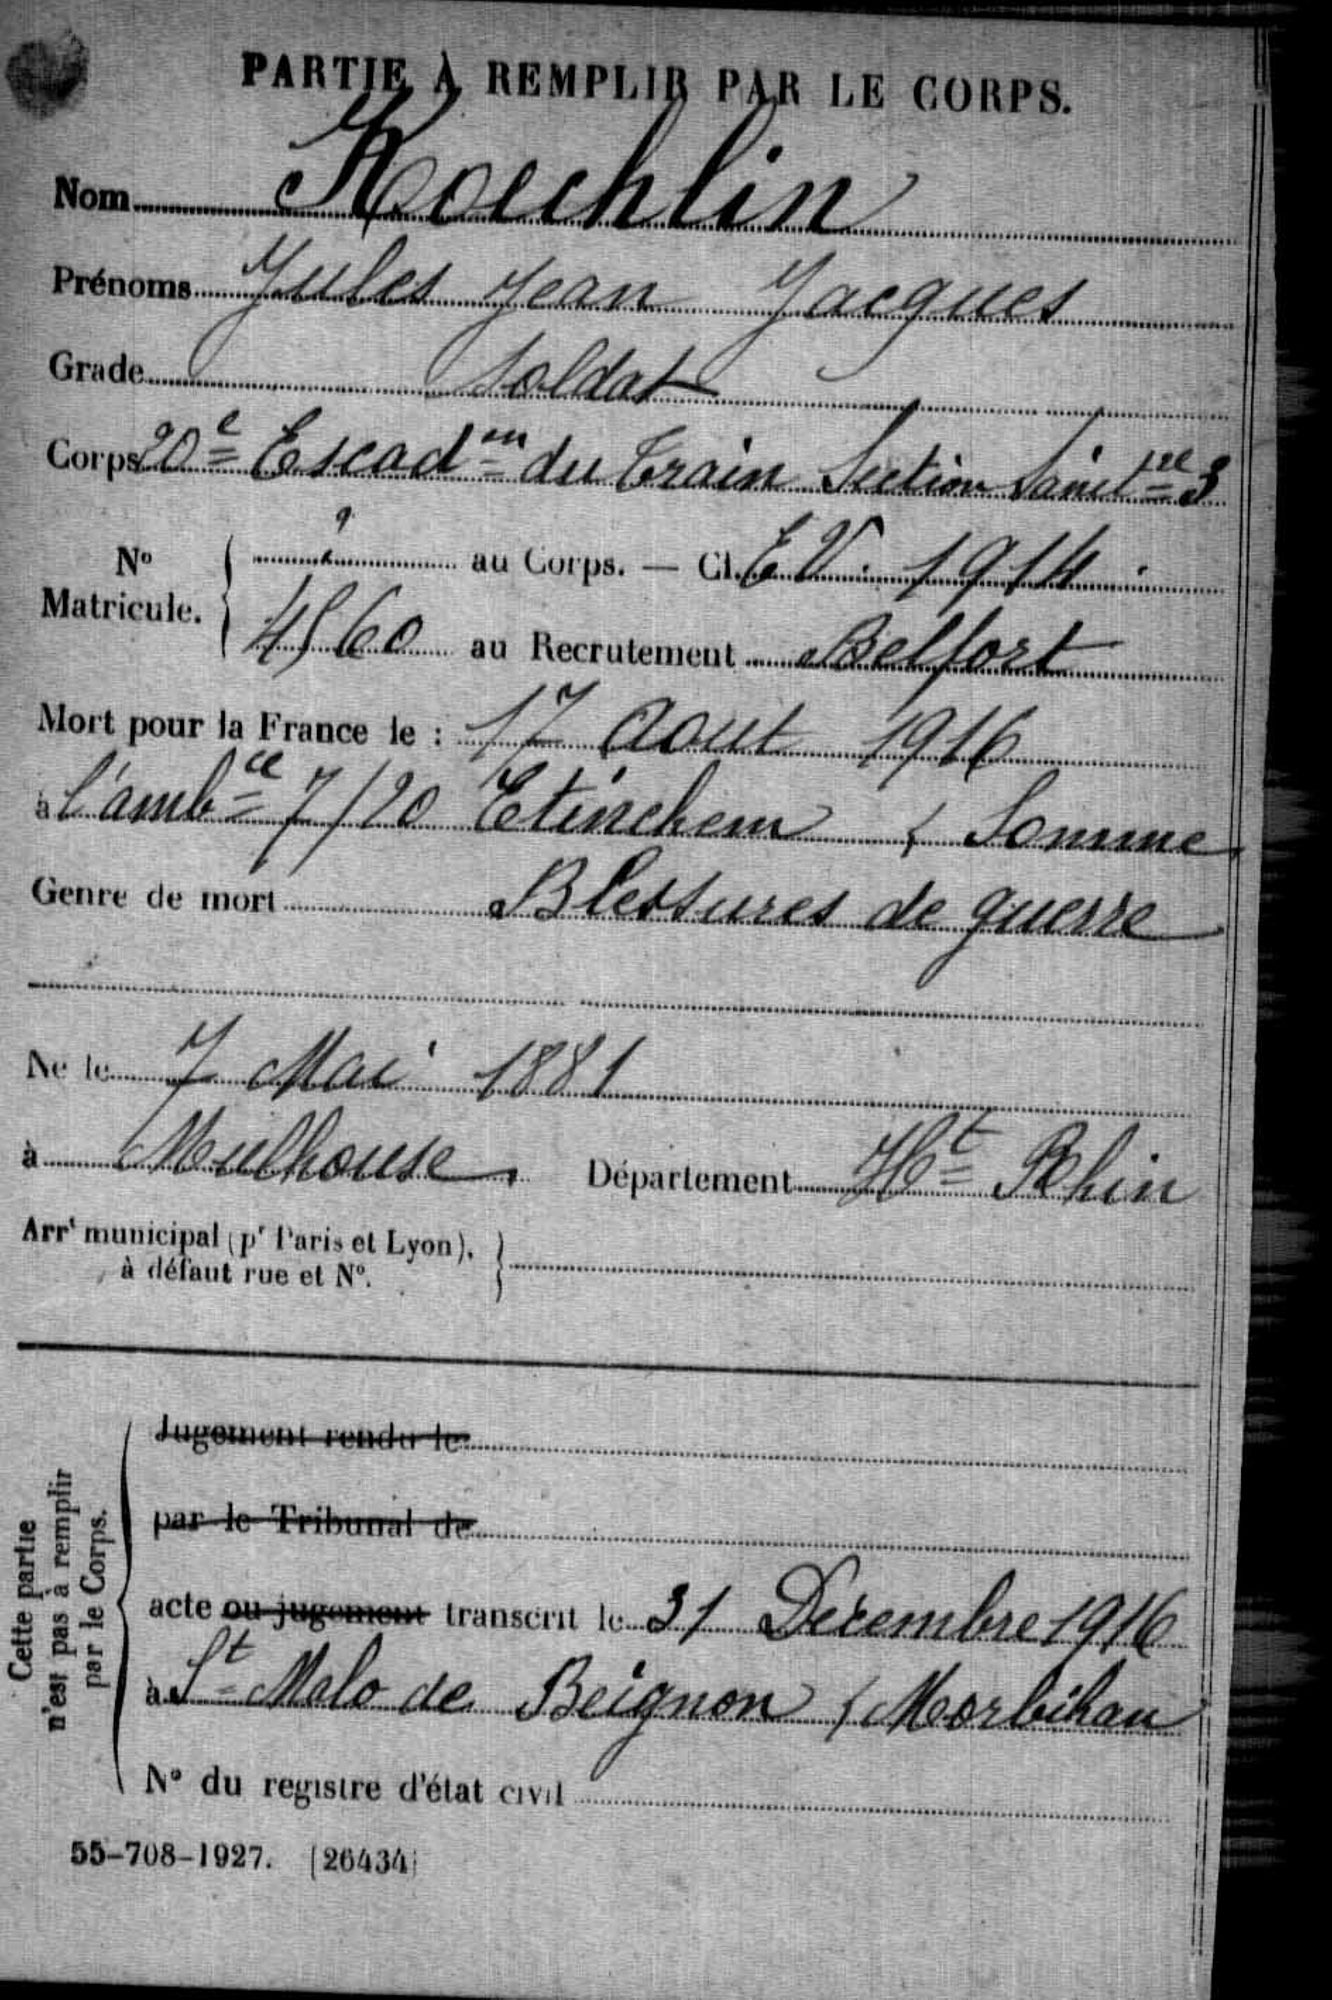 PARTIE À REMPLIR PAR LE CORPS.
Nom Koechlin
Prénoms Jules Jean Jacques
Grade Soldat
Corps 20e Escadon du Train Section Sanitre 3
No Matricule. { ? au Corps. — Cl. E.V. 1914.
4560 au Recrutement Belfort
Mort pour la France le : 17 Aout 1916
à l'ambce 7/20 Etinehem ( Somme
Genre de mort Blessures de guerre
Né le 7 Mai 1881
à Mulhouse. Département Ht Rhin
Arrt municipal (pr Paris et Lyon),
à défaut rue et No.
Cette partie
n'est pas à remplir
par le Corps.
Jugement rendu le
par le Tribunal de
acte ou jugement transcrit le 31 Décembre 1916
à St Malo de Beignon ( Morbihan
No du registre d'état civil
55-708-1927. [26434]